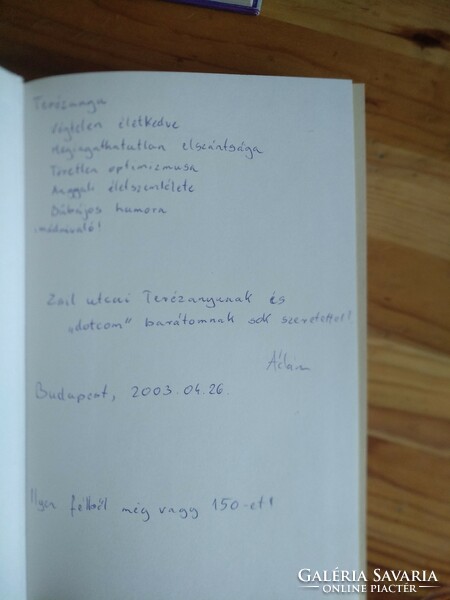 Terézanya
végtelen életkedve
Megingathatatlan elszántsága
Töretlen optimizmusa
Anggali életszemlélete
Bűbájos humora
imádnivaló!
Zsil utcai Terézanyunak és
„dotcom" barátomnak sok szeretettel!
Ádám
Budapest, 2003.04.26.
Ilyen félből még vagy 150-et!
GALÉRIA SAVARIA
ONLINE PIACTÉR